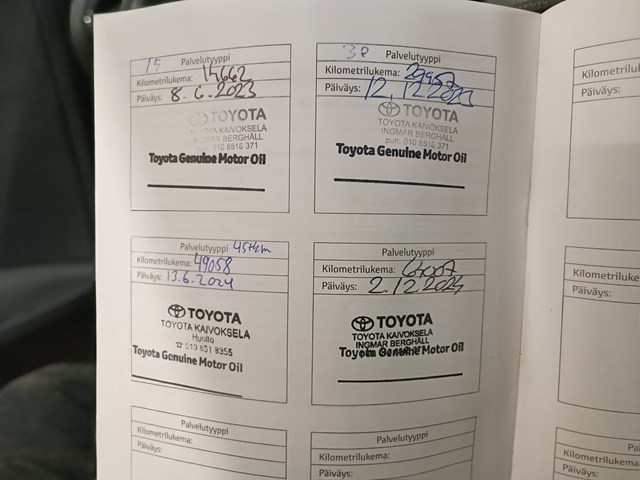 15 Palvelutyyppi
Kilometrilukema: 14662
Päiväys: 8.6.2023
TOYOTA
TOYOTA KAIVOKSELA
INGMAR BERGHÄLL
puh. 010 8515 371
Toyota Genuine Motor Oil
30 Palvelutyyppi
Kilometrilukema: 29957
Päiväys: 12.12.2023
TOYOTA
TOYOTA KAIVOKSELA
INGMAR BERGHÄLL
puh. 010 8515 371
Toyota Genuine Motor Oil
Palvelutyyppi 45tkm
Kilometrilukema: 49058
Päiväys: 13.6.2024
TOYOTA
TOYOTA KAIVOKSELA
Huolto
☎ 010 851 8355
Toyota Genuine Motor Oil
Palvelutyyppi
Kilometrilukema:
Päiväys: 2.12.2024
TOYOTA
TOYOTA KAIVOKSELA
INGMAR BERGHÄLL
Toyota Genuine Motor Oil
Palvelutyyppi
Kilometrilukema:
Päiväys:
Palvelutyyppi
Kilometrilukema:
Päiväys:
Päiväys:
Kilometrilukema:
Päiväys:
Päiväys: